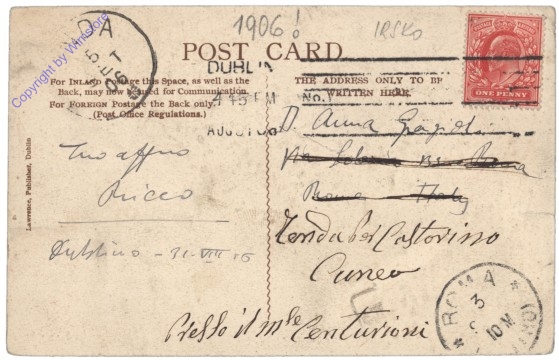 1906!
IRSKO
POST CARD
Copyright by WinStore
DUBLIN
4 45 PM
AUG 31 06
No. 1
For Inland Postage this Space, as well as the
Back, may now be used for Communication.
For Foreign Postage the Back only.
(Post Office Regulations.)
THE ADDRESS ONLY TO BE
WRITTEN HERE.
POSTAGE & REVENUE
ONE PENNY
Lawrence, Publisher, Dublin
Tuo affmo
Ricco
Dublino - 31-VIII 06
Anna
Roma Italy
Tenda per Castorino
Cuneo
Presso il Mse Centurioni
ROMA
3
10 M